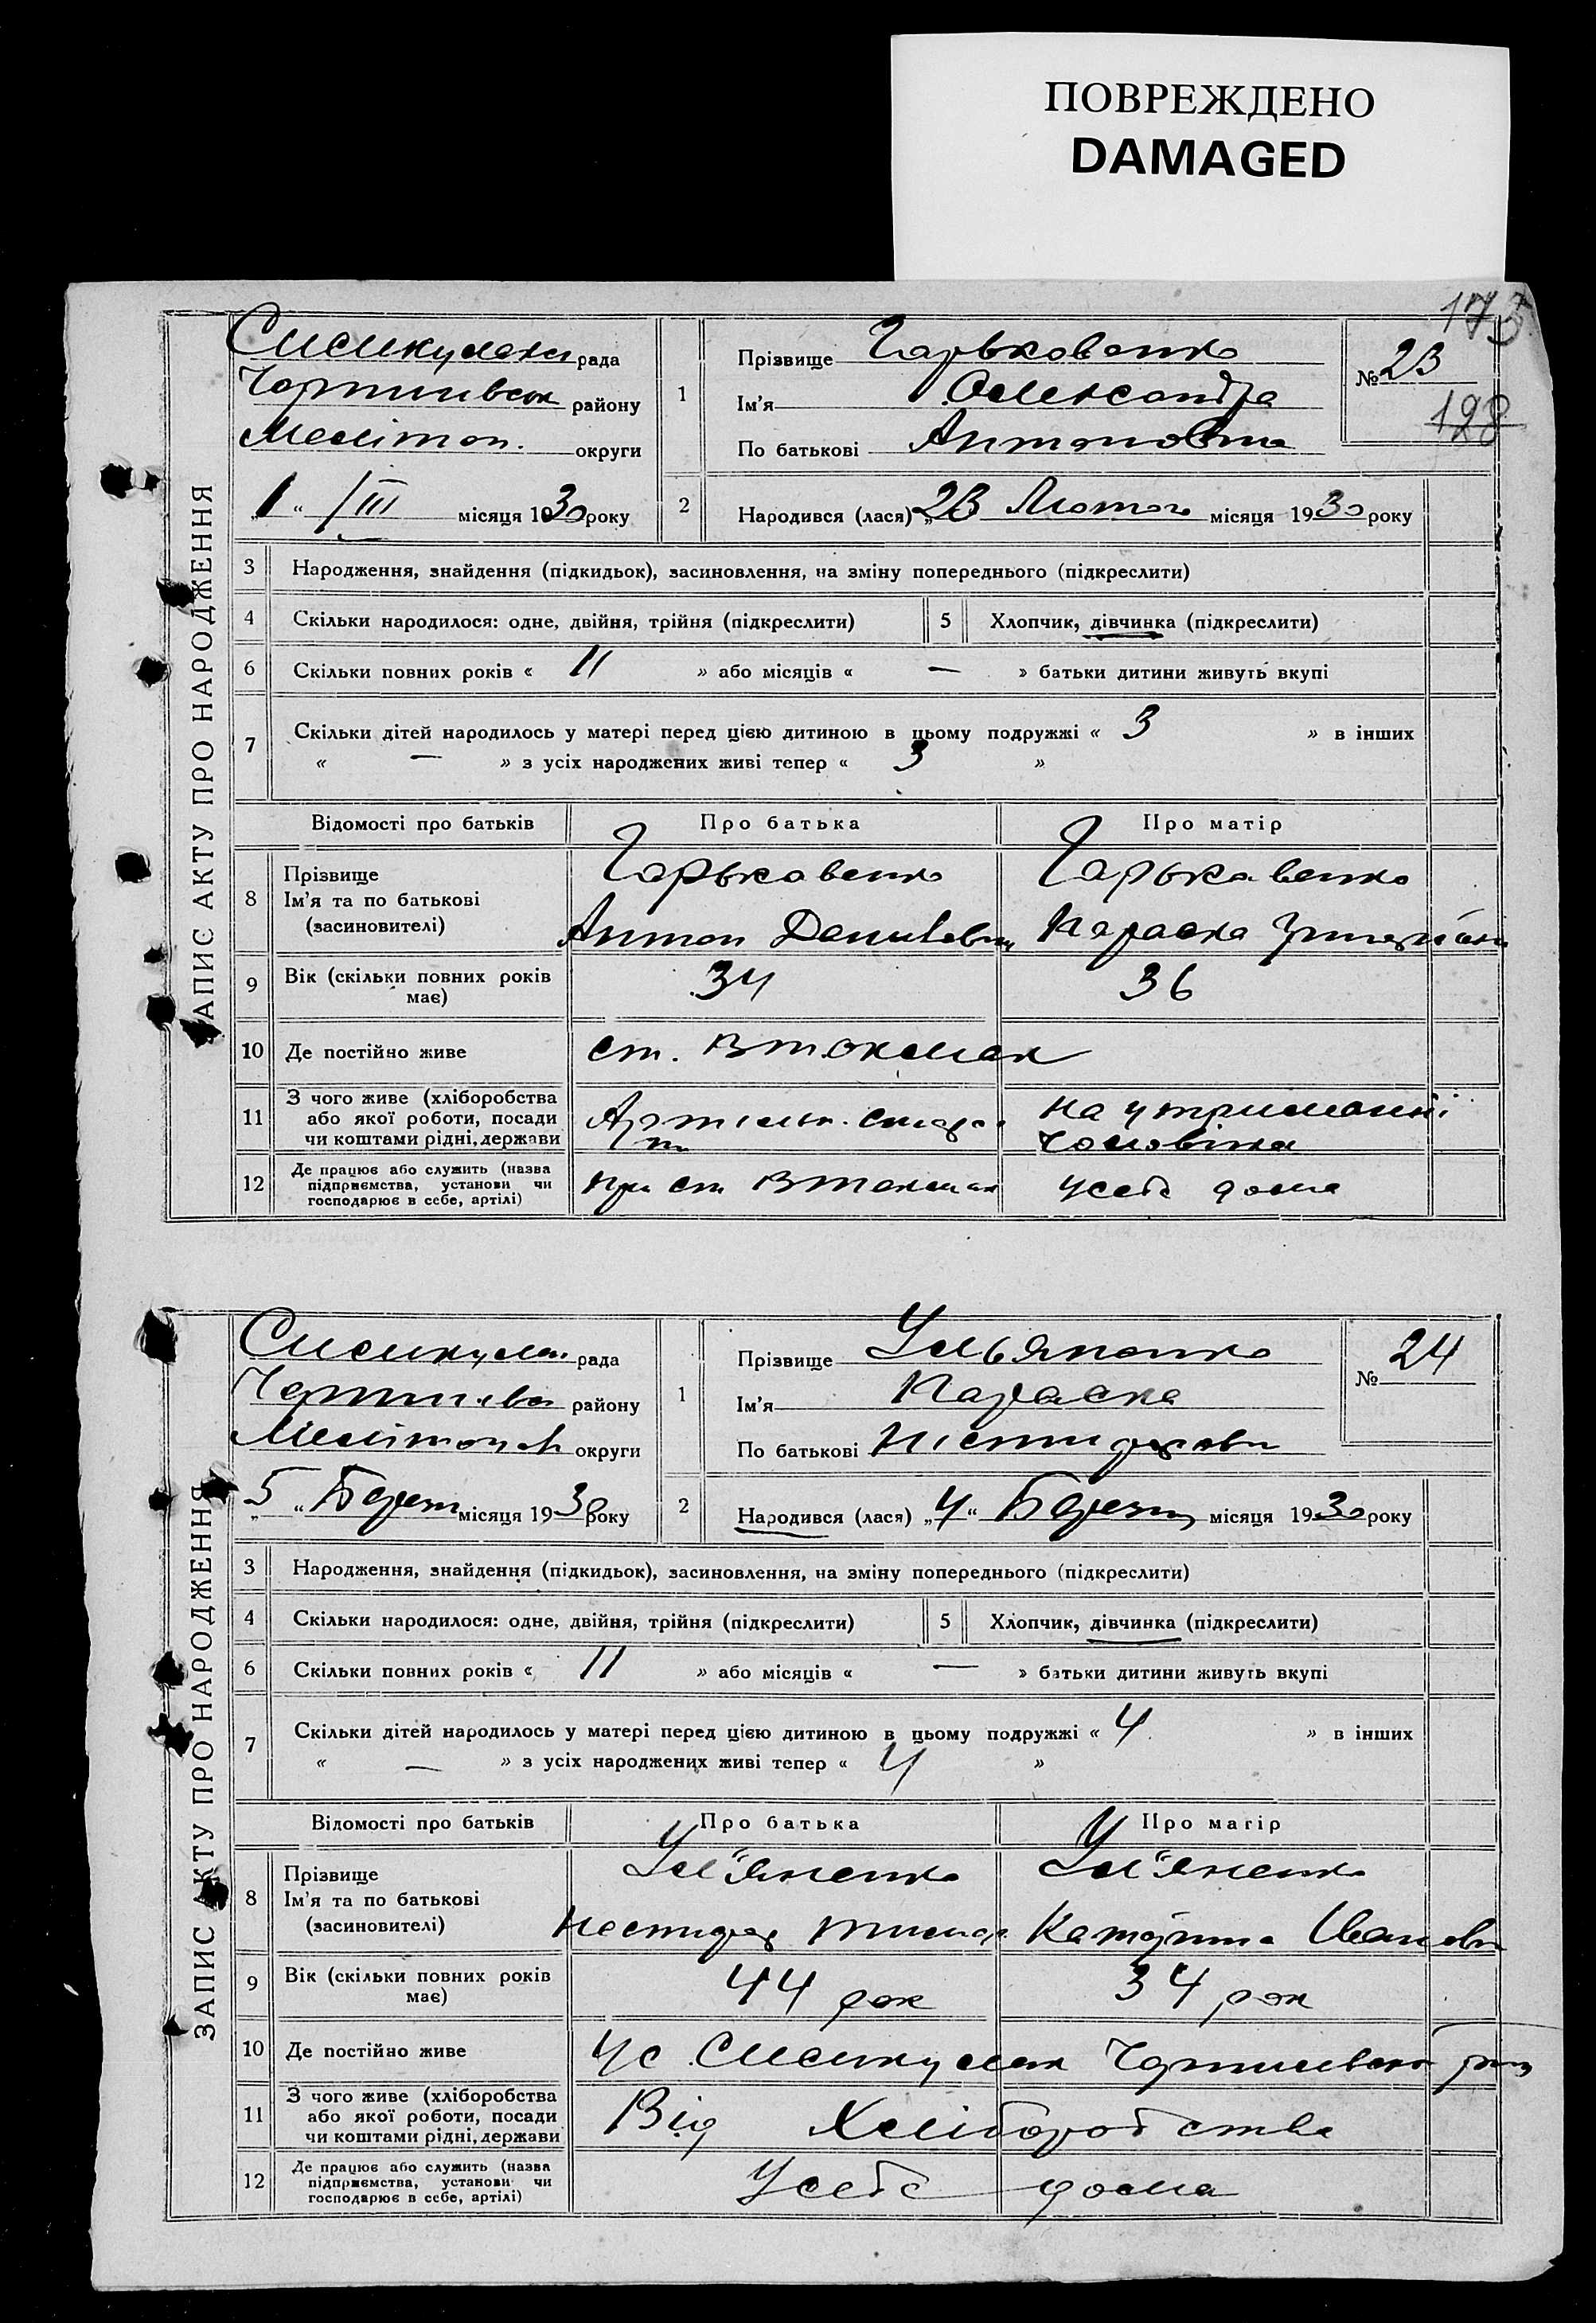 ПОВРЕЖДЕНО
DAMAGED
173
ЗАПИС АКТУ ПРО НАРОДЖЕННЯ
рада
району
Мелітоп. округи
„1“ /III місяця 1930 року
1
Прізвище Гарьковенко
Ім'я Олександра
По батькові Антоновна
№ 23
128
2
Народився (лася) „23 Лютого місяця 1930 року
3 Народження, знайдення (підкидьок), засиновлення, на зміну попереднього (підкреслити)
4 Скільки народилося: одне, двійня, трійня (підкреслити) 5 Хлопчик, дівчинка (підкреслити)
6 Скільки повних років « 11 » або місяців « — » батьки дитини живуть вкупі
7 Скільки дітей народилось у матері перед цією дитиною в цьому подружжі « 3 » в інших
« — » з усіх народжених живі тепер « 3 »
Відомості про батьків Про батька Про матір
8 Прізвище
Ім'я та по батькові
(засновителі)
Гарькавенко Гарькавенко
Антон Данилович Параска
9 Вік (скільки повних років має) 34 36
10 Де постійно живе ст. В Токмак
11 З чого живе (хліборобства
або якої роботи, посади
чи коштами рідні, держави
на утриманні
чоловіка
12 Де працює або служить (назва
підприємства, установи чи
господарює в себе, артілі)
при ст В Токмак у себе дома
ЗАПИС АКТУ ПРО НАРОДЖЕННЯ
рада
району
округи
„5“ Березн місяця 1930 року
1
Прізвище Ульяненко
Ім'я Параска
По батькові
№ 24
2
Народився (лася) „4“ Березн місяця 1930 року
3 Народження, знайдення (підкидьок), засиновлення, на зміну попереднього (підкреслити)
4 Скільки народилося: одне, двійня, трійня (підкреслити) 5 Хлопчик, дівчинка (підкреслити)
6 Скільки повних років « 11 » або місяців « — » батьки дитини живуть вкупі
7 Скільки дітей народилось у матері перед цією дитиною в цьому подружжі « 4 » в інших
« — » з усіх народжених живі тепер « 4 »
Відомості про батьків Про батька Про матір
8 Прізвище
Ім'я та по батькові
(засиновителі)
Ул'яненко Ул'яненко
Катерина Іванов
9 Вік (скільки повних років має) 44 рок 34 рок
10 Де постійно живе
11 З чого живе (хліборобства
або якої роботи, посади
чи коштами рідні, держави
Від Хліборобства
12 Де працює або служить (назва
підприємства, установи чи
господарює в себе, артілі)
У себе дома